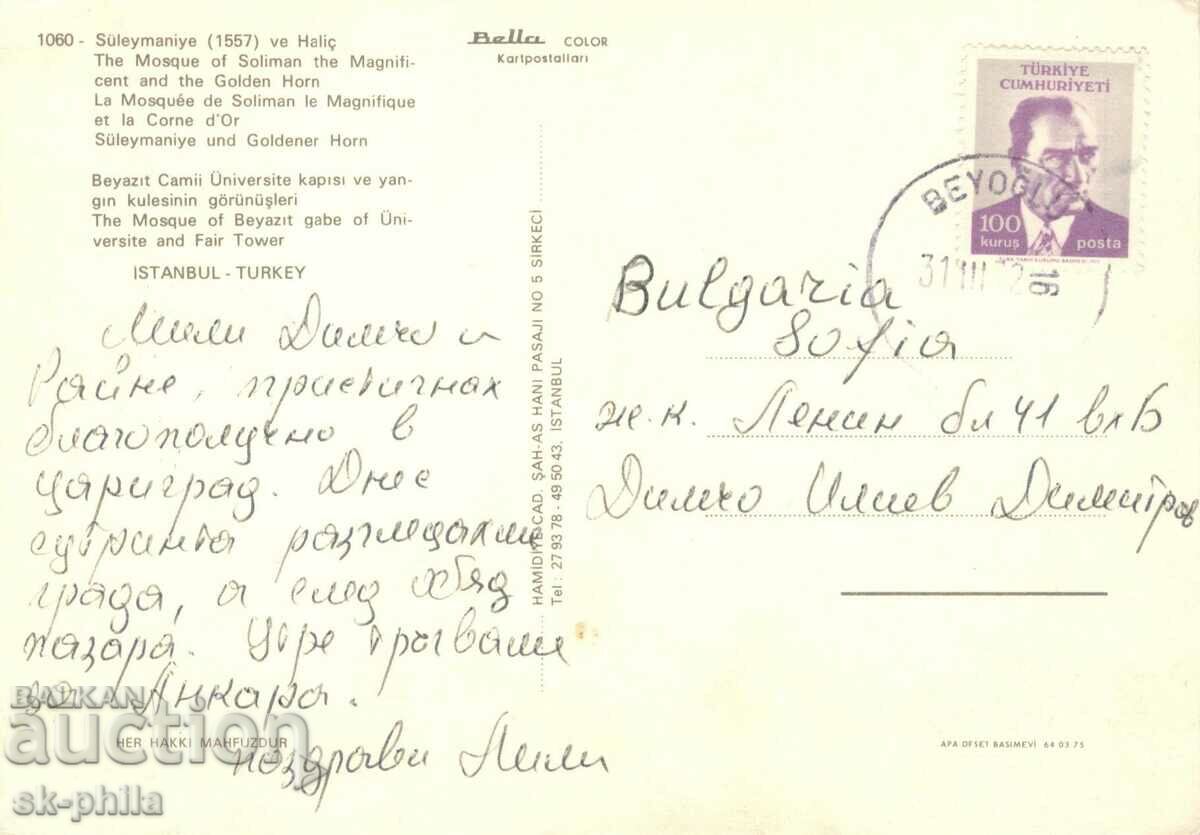 1060 - Süleymaniye (1557) ve Haliç
The Mosque of Soliman the Magnifi-
cent and the Golden Horn
La Mosquée de Soliman le Magnifique
et la Corne d'Or
Süleymaniye und Goldener Horn
Beyazıt Camii Üniversite kapısı ve yan-
gın kulesinin görünüşleri
The Mosque of Beyazıt gabe of Üni-
versite and Fair Tower
İSTANBUL - TURKEY
Bella COLOR
Kartpostalları
TÜRKİYE
CUMHURİYETİ
100
kuruş posta
BEYOĞLU
16
Мили Димчо и
Райне, пристигнах
благополучно в
Цариград. Днес
сутринта разгледахме
града, а след обяд
пазара. Утре тръгваме
за Анкара.
поздрави Лили
HAMİDİYE CAD. ŞAH-AS HANI PASAJI NO 5 SİRKECİ
Tel: 27 93 78 - 49 50 43, İSTANBUL
Bulgaria
Sofia
ж.к. Ленин бл 41 вх Б
Димчо Илиев Димитров
HER HAKKI MAHFUZDUR
APA OFSET BASIMEVİ 64 03 75
BALKAN
auction
sk-phila